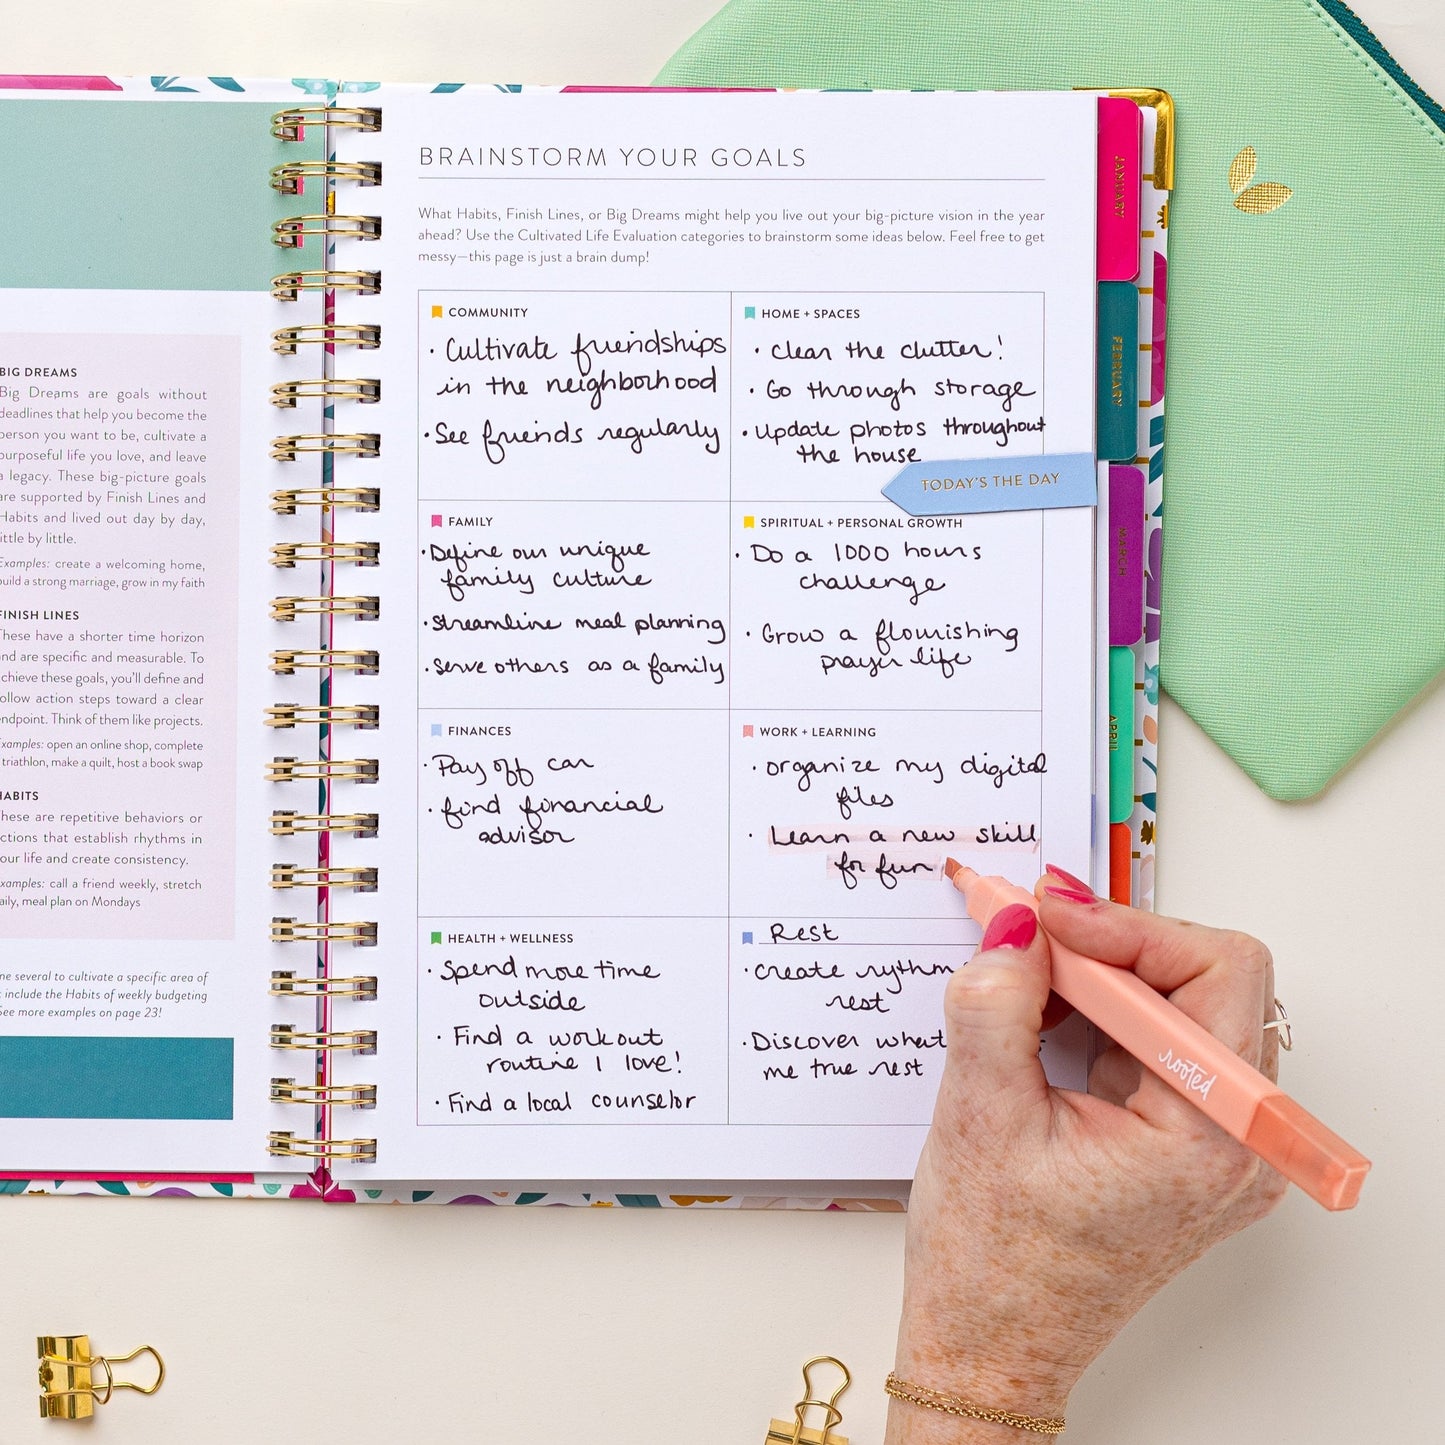 BIG DREAMS
Big Dreams are goals without
deadlines that help you become the
person you want to be, cultivate a
purposeful life you love, and leave
a legacy. These big-picture goals
are supported by Finish Lines and
Habits and lived out day by day,
little by little.
Examples: create a welcoming home,
build a strong marriage, grow in my faith
FINISH LINES
These have a shorter time horizon
and are specific and measurable. To
achieve these goals, you'll define and
follow action steps toward a clear
endpoint. Think of them like projects.
Examples: open an online shop, complete
triathlon, make a quilt, host a book swap
HABITS
These are repetitive behaviors or
actions that establish rhythms in
your life and create consistency.
Examples: call a friend weekly, stretch
daily, meal plan on Mondays
several to cultivate a specific area of
include the Habits of weekly budgeting
See more examples on page 23!
BRAINSTORM YOUR GOALS
What Habits, Finish Lines, or Big Dreams might help you live out your big-picture vision in the year
ahead? Use the Cultivated Life Evaluation categories to brainstorm some ideas below. Feel free to get
messy—this page is just a brain dump!
COMMUNITY
• Cultivate friendships
in the neighborhood
• See friends regularly
HOME + SPACES
• Clear the clutter!
• Go through storage
• Update photos throughout
the house
TODAY'S THE DAY
FAMILY
• Define our unique
family culture
• Streamline meal planning
• Serve others as a family
SPIRITUAL + PERSONAL GROWTH
• Do a 1000 hours
challenge
• Grow a flourishing
prayer life
FINANCES
• Pay off car
• find financial
advisor
WORK + LEARNING
• organize my digital
files
• Learn a new skill
for fun
HEALTH + WELLNESS
• Spend more time
outside
• Find a workout
routine I love!
• Find a local counselor
Rest
• create rythm
rest
• Discover what
me true rest
JANUARY
FEBRUARY
MARCH
APRIL
rooted